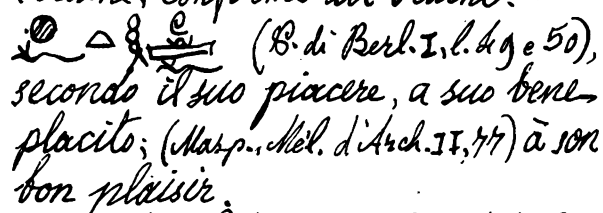 (P. di Berl. I, l. 49 e 50),
secondo il suo piacere, a suo bene-
placito; (Masp., Mél. d'Arch. II, 77) à son
bon plaisir.